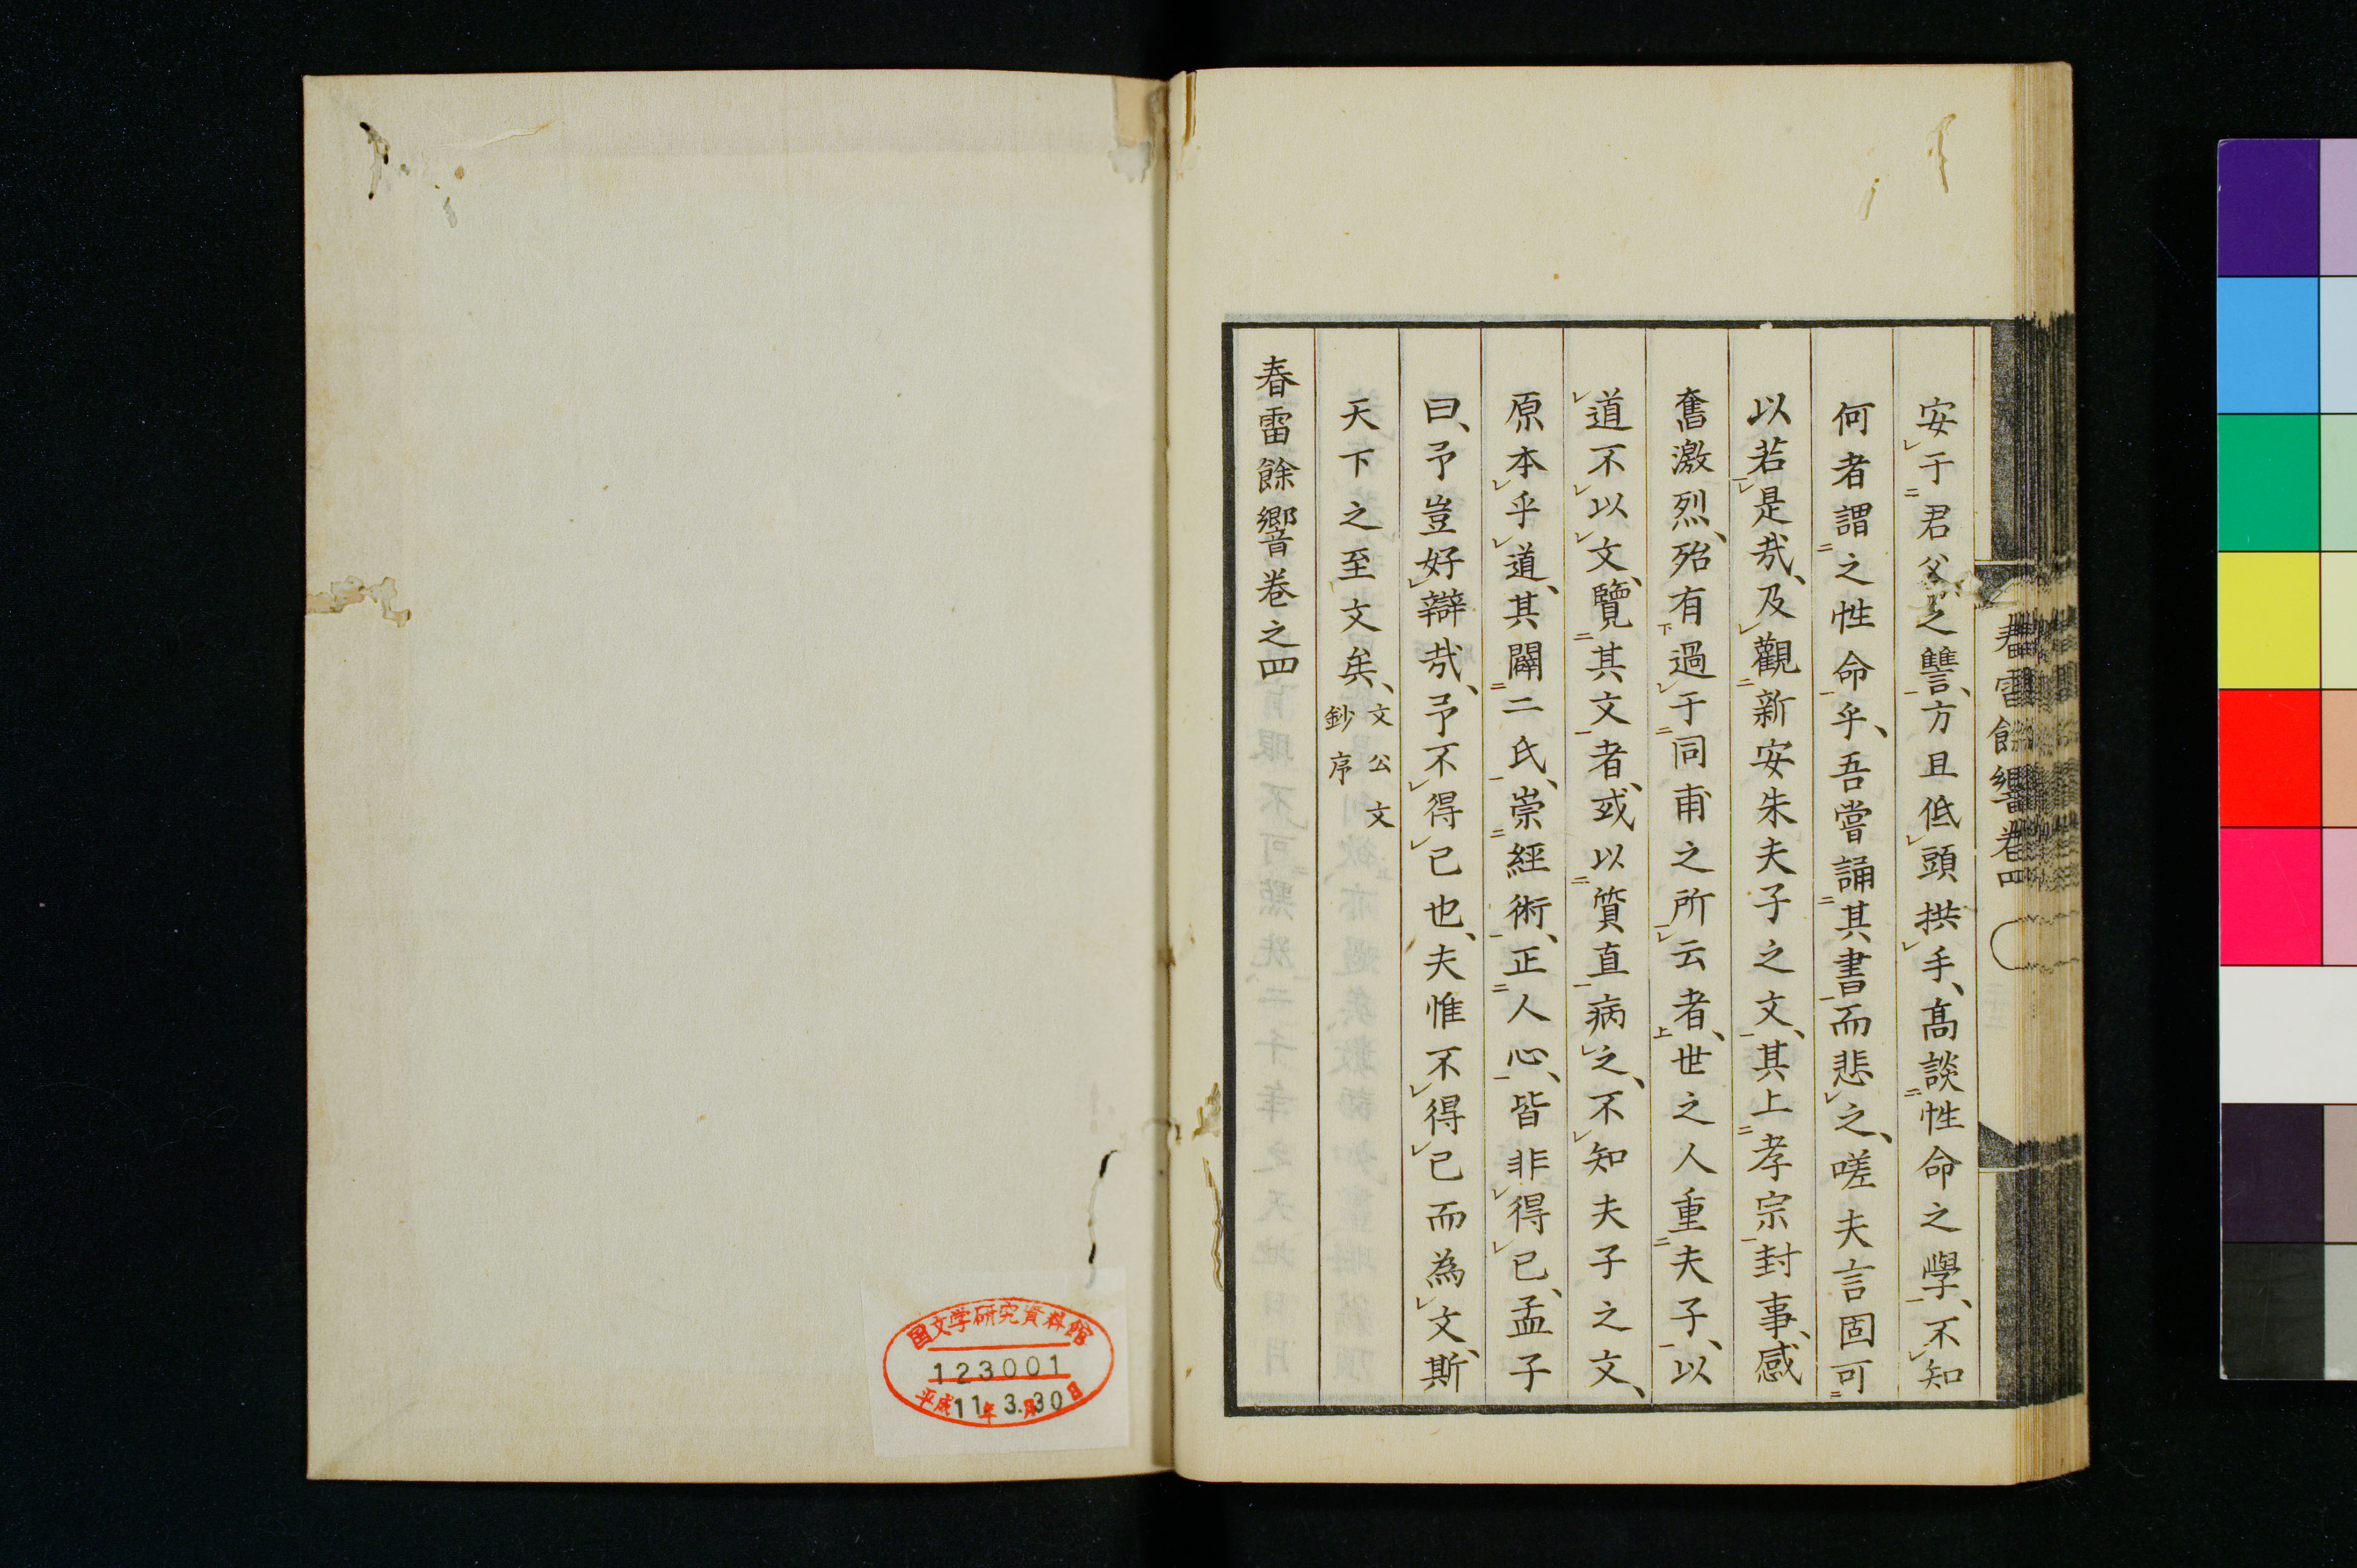 春雷餘響卷四
安于君父之讐、方且低頭拱手、髙談性命之學、不知
何者謂之性命乎、吾嘗誦其書而悲之、嗟夫言固可
以若是哉、及觀新安朱夫子之文、其上孝宗封事、感
奮激烈、殆有過于同甫之所云者、世之人重夫子、以
道不以文、覽其文者、或以質直病之、不知夫子之文、
原本乎道、其闢二氏、崇經術、正人心、皆非得已、孟子
曰、予豈好辯哉、予不得已也、夫惟不得已而為文、斯
天下之至文矣、文公文
鈔序
春雷餘響卷之四
国文学研究資料館
123001
平成11年3.月30日